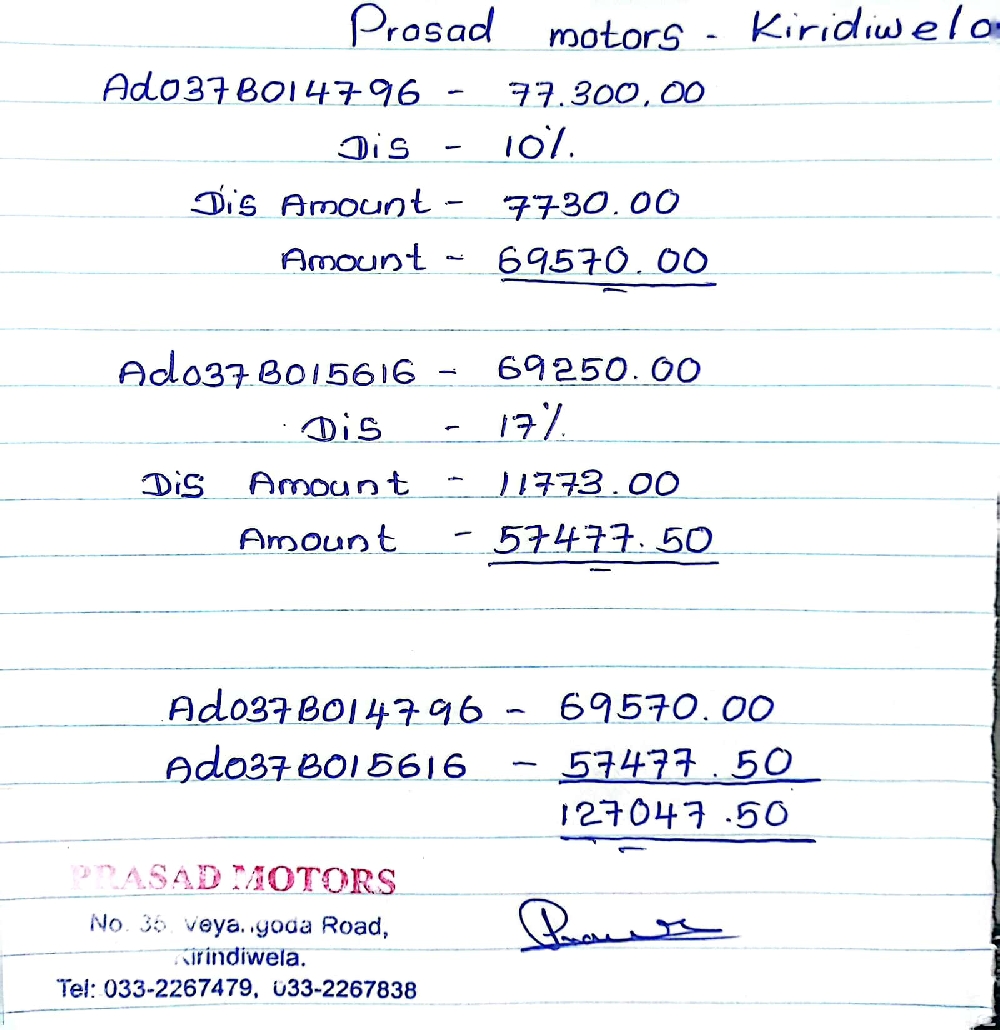 Prasad motors - Kiridiwela
Ad037B014796 - 77.300.00
Dis - 10%.
Dis Amount - 7730.00
Amount - 69570.00
Ad037B015616 - 69250.00
Dis - 17%.
Dis Amount - 11773.00
Amount - 57477.50
Ad037B014796 - 69570.00
Ad037B015616 - 57477.50
127047.50
PRASAD MOTORS
No. 36 Road,
Kirindiwela.
Tel: 033-2267479, 033-2267838